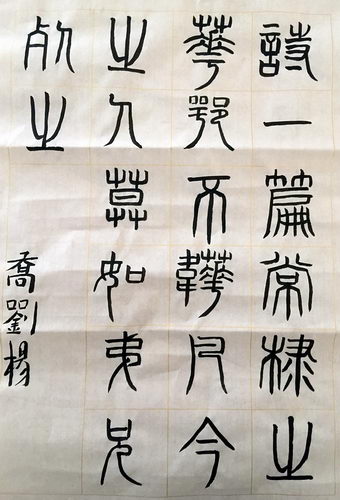 詩一篇常棣之
華鄂不韡凡今
之人莫如弟兄
之
喬劉楊